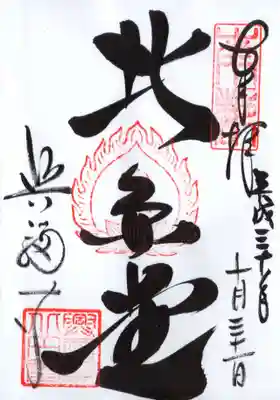 奉拝 平成三十年
十月三十一日
北円堂
興福寺